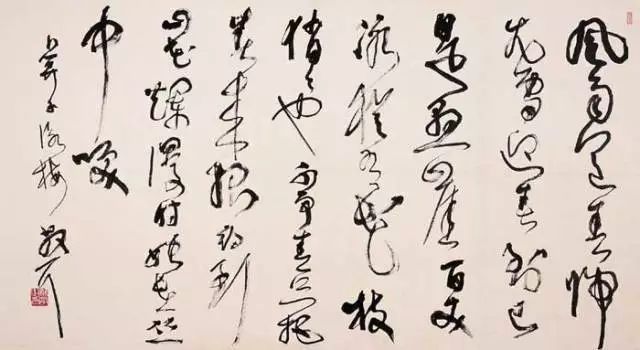 風雨送春歸
飛雪迎春到已
是懸崖百丈
冰猶有花枝
俏々也不爭春只把
春来報待到
山花爛漫时她在丛
中笑
卜算子咏梅